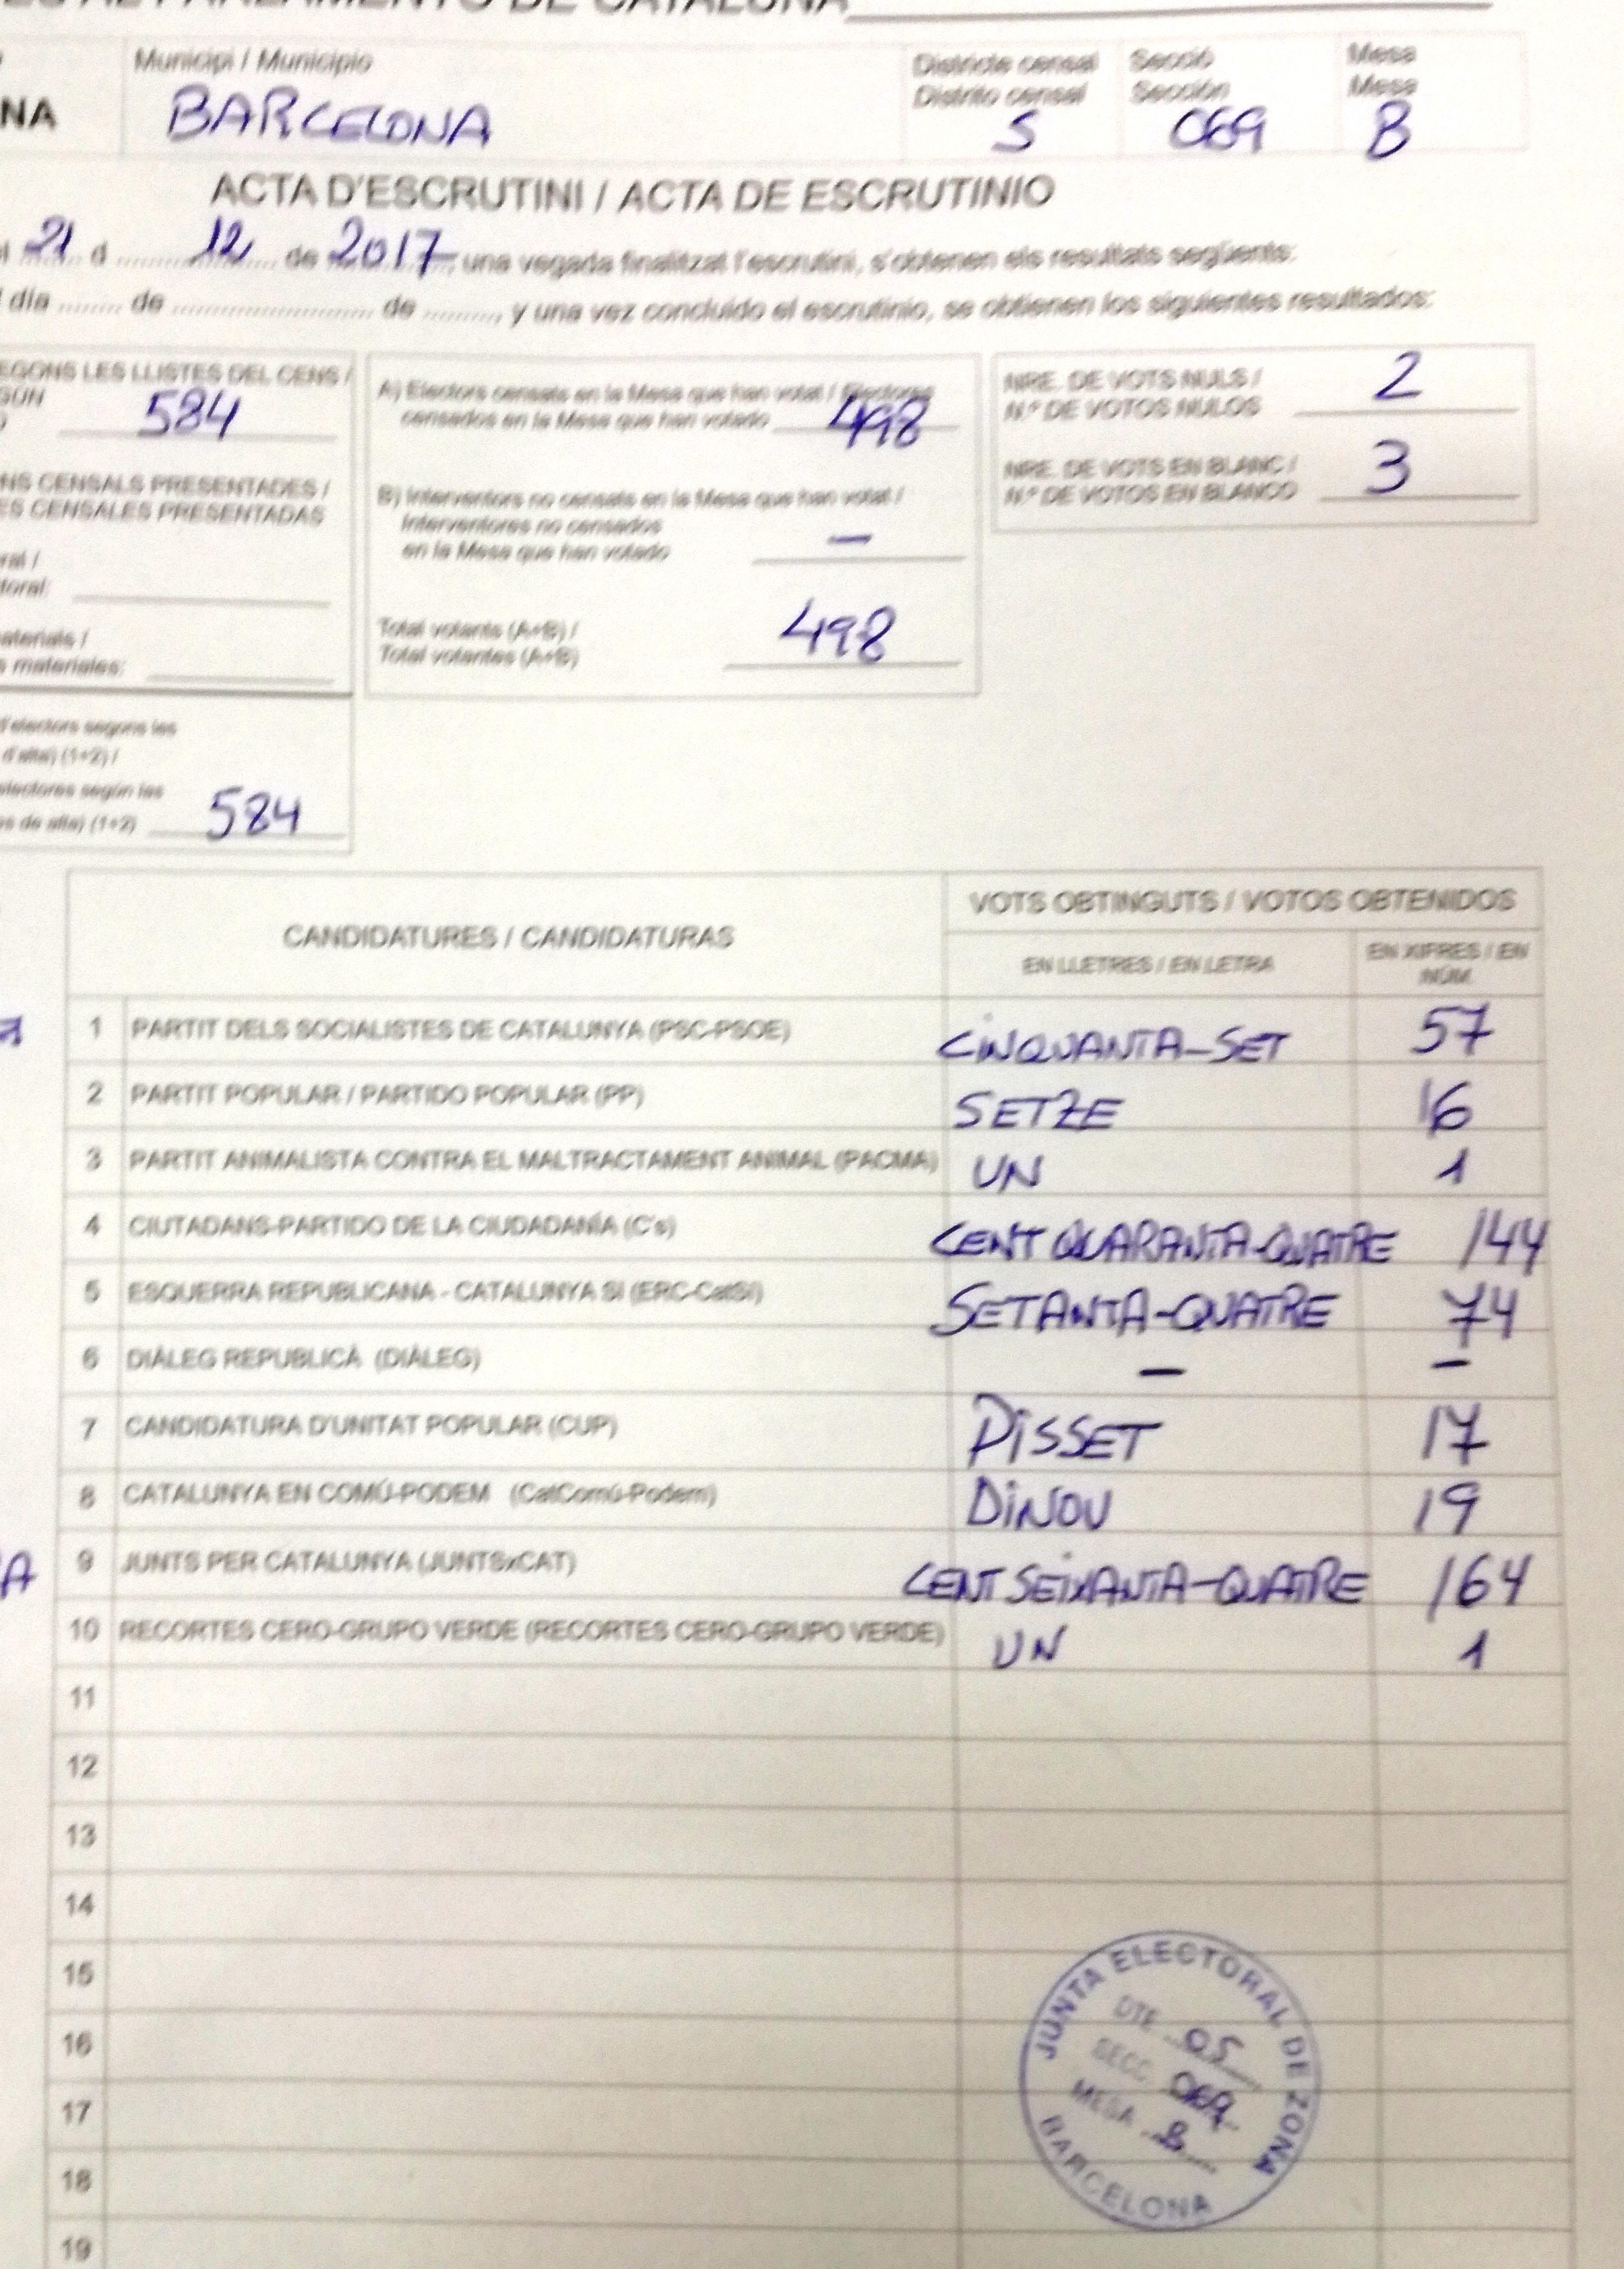 ES AL PARLAMENTO DE CATALUÑA
Municipi / Municipio
NA BARCELONA
Districte censal
Distrito censal
5
Secció
Sección
069
Mesa
Mesa
B
ACTA D'ESCRUTINI / ACTA DE ESCRUTINIO
21 d 12 de 2017, una vegada finalitzat l'escrutini, s'obtenen els resultats següents:
día ........ de ........................ de ........., y una vez concluido el escrutinio, se obtienen los siguientes resultados:
EGONS LES LLISTES DEL CENS /
GÚN
O 584
NS CENSALS PRESENTADES /
ES CENSALES PRESENTADAS
ral /
toral:
aterials /
s materiales:
d'electors segons les
d'alta) (1+2) /
electores según las
es de alta) (1+2) 584
A) Electors censats en la Mesa que han votat / Electores
censados en la Mesa que han votado 498
B) Interventors no censats en la Mesa que han votat /
Interventores no censados
en la Mesa que han votado —
Total votants (A+B) /
Total votantes (A+B) 498
NRE. DE VOTS NULS /
N.º DE VOTOS NULOS 2
NRE. DE VOTS EN BLANC /
N.º DE VOTOS EN BLANCO 3
CANDIDATURES / CANDIDATURAS
VOTS OBTINGUTS / VOTOS OBTENIDOS
EN LLETRES / EN LETRA
EN XIFRES / EN
NÚM.
1 PARTIT DELS SOCIALISTES DE CATALUNYA (PSC-PSOE) CINQUANTA-SET 57
2 PARTIT POPULAR / PARTIDO POPULAR (PP) SETZE 16
3 PARTIT ANIMALISTA CONTRA EL MALTRACTAMENT ANIMAL (PACMA) UN 1
4 CIUTADANS-PARTIDO DE LA CIUDADANÍA (C's) CENT QUARANTA-QUATRE 144
5 ESQUERRA REPUBLICANA - CATALUNYA SI (ERC-CatSí) SETANTA-QUATRE 74
6 DIÀLEG REPUBLICÀ (DIÀLEG) — —
7 CANDIDATURA D'UNITAT POPULAR (CUP) DISSET 17
8 CATALUNYA EN COMÚ-PODEM (CatComú-Podem) DINOU 19
A 9 JUNTS PER CATALUNYA (JUNTSxCAT) CENT SEIXANTA-QUATRE 164
10 RECORTES CERO-GRUPO VERDE (RECORTES CERO-GRUPO VERDE) UN 1
11
12
13
14
15
16
17
18
19
JUNTA ELECTORAL DE ZONA
DTE. 05
SECC. 069
MESA B
BARCELONA